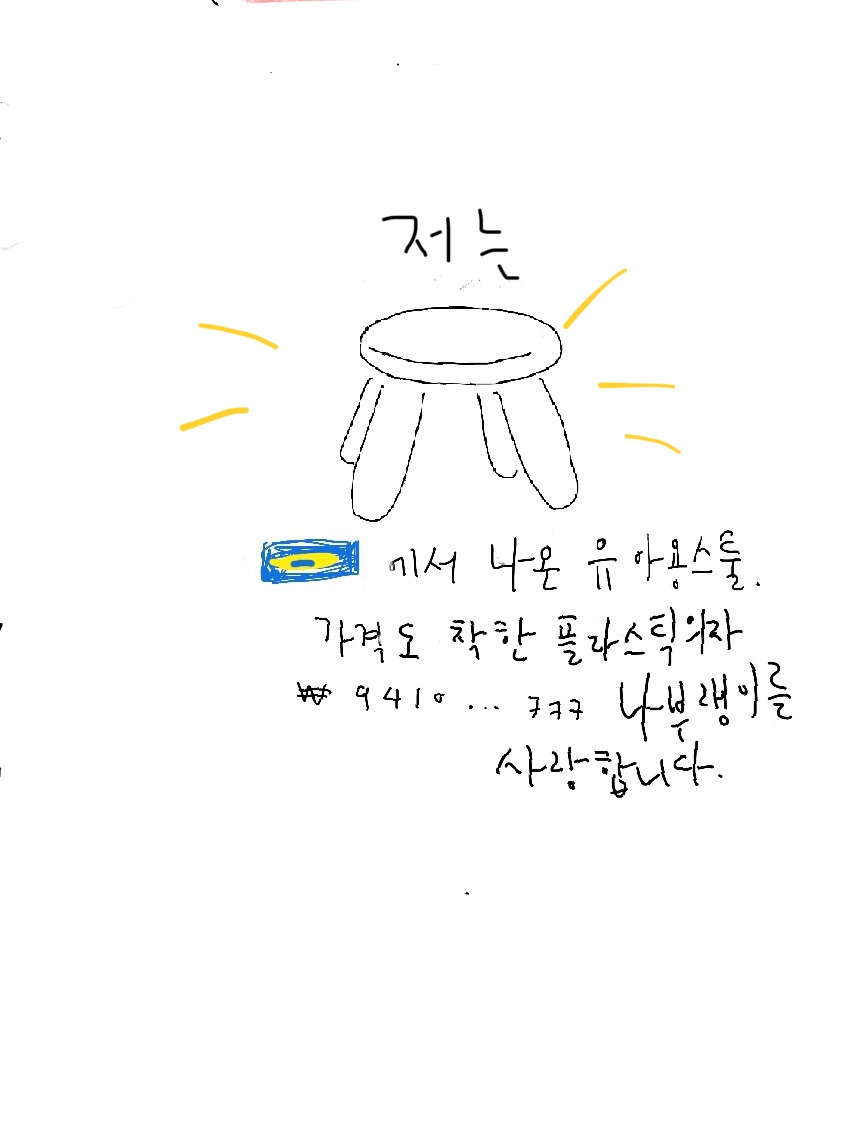 저는
에서 나온 유아용스툴.
가격도 착한 플라스틱의자
₩ 9410... ㅋㅋㅋ 나부랭이를
사랑합니다.